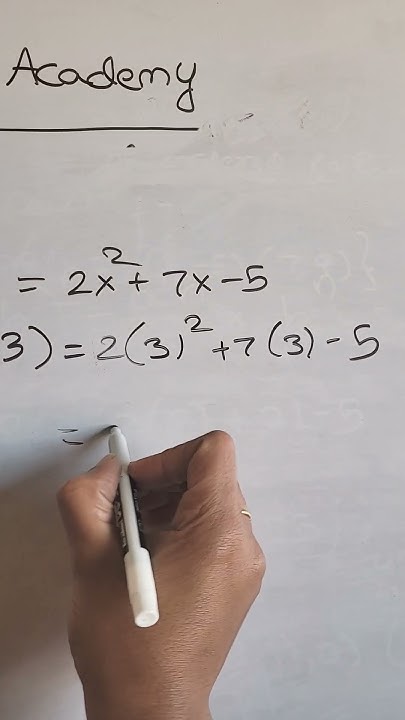 Academy
= 2x² + 7x - 5
3) = 2(3)² + 7(3) - 5
=